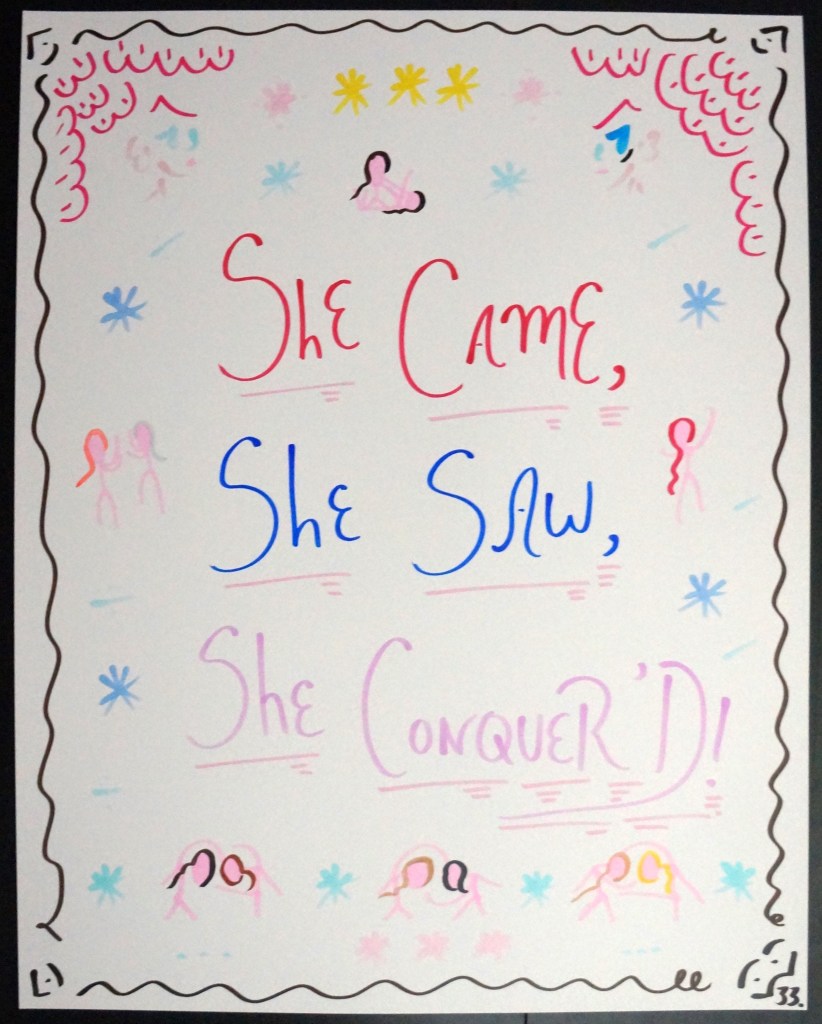 She Came,
She Saw,
She Conquer'd!
33.